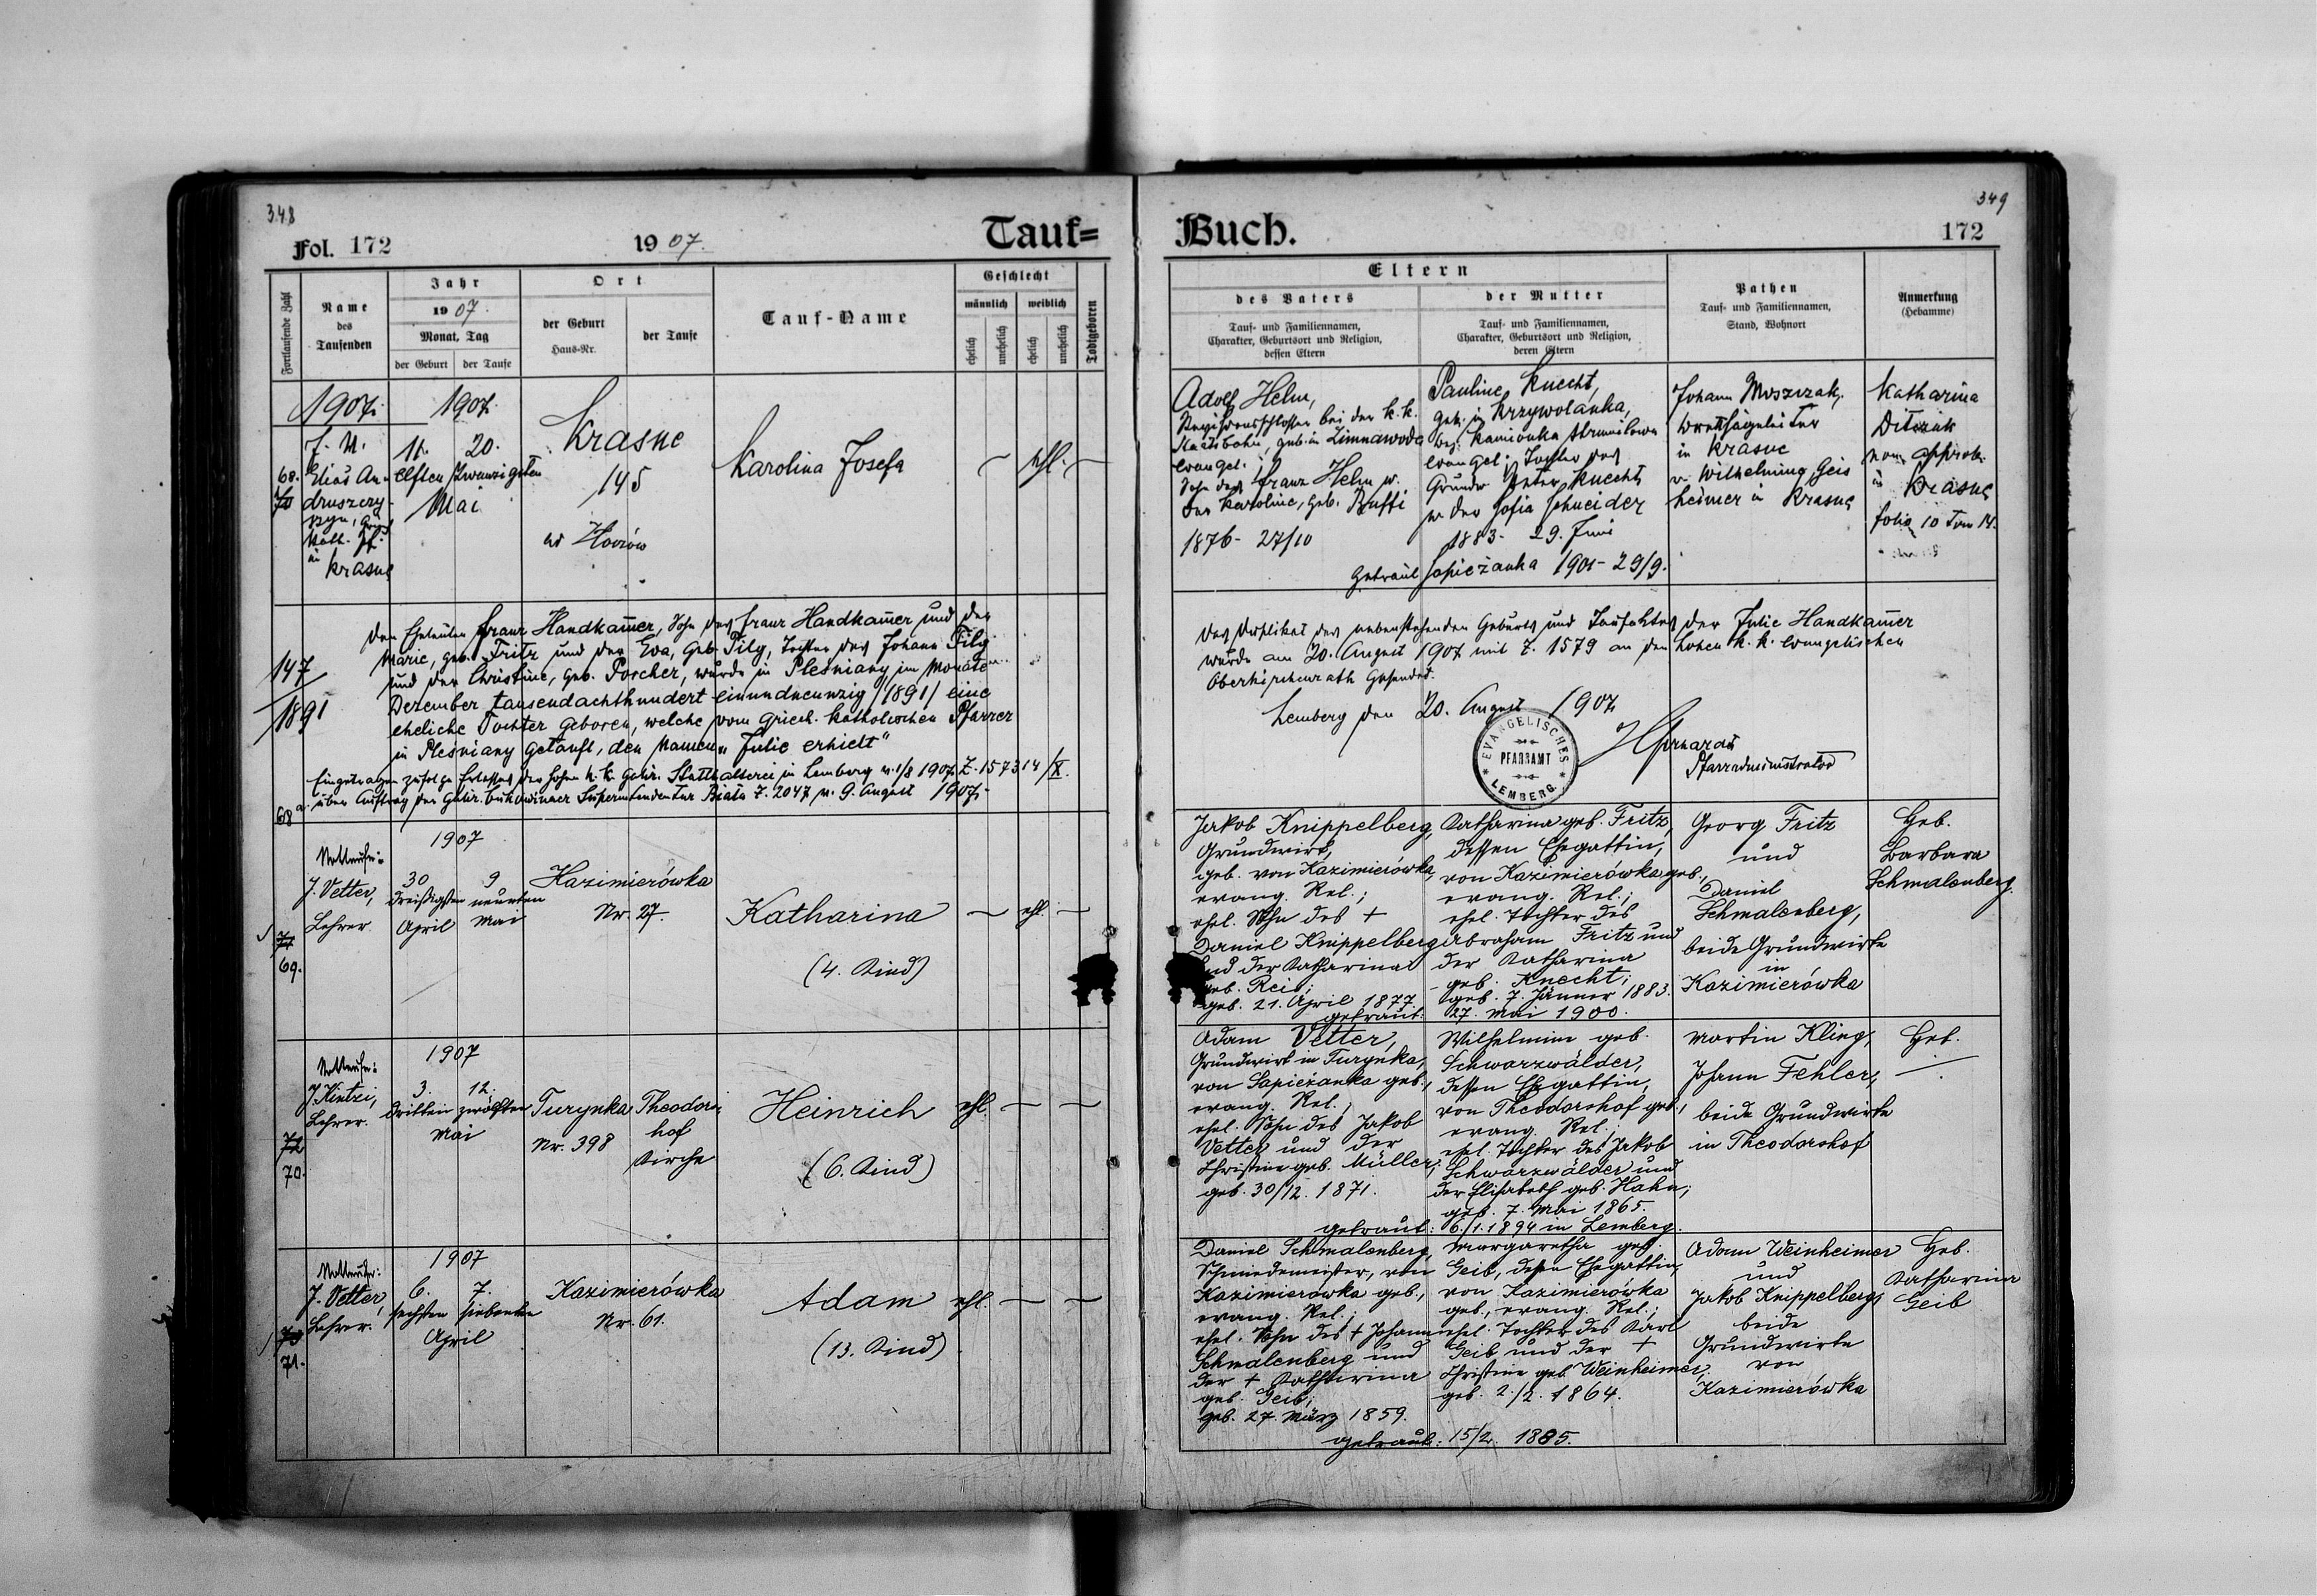 348
Fol. 172
1907.
Tauf=
Fortlaufende Zahl
Name
des
Taufenden
Jahr
1907.
Monat, Tag
der Geburt
der Taufe
Ort
der Geburt
Haus-Nr.
der Taufe
Tauf-Name
Geschlecht
männlich
weiblich
ehelich
unehelich
ehelich
unehelich
Todtgeboren
1907.
1907.
68.
Elias An-
druszczy-
in
Krasne
11. 20.
elften Zwanzigsten
Mai
Krasne
145
Karolina Josefa
ehl.
147
1891
Den Eheleuten Franz Handkam̄er, Sohn des Franz Handkam̄er und der
Marie, geb. Fritz und der Eva, geb. Filg, Tochter des Johann Filg
und der Christine, geb. Porcher, wurde in Pleśniany im Monate
Dezember tausendachthundert einundneunzig /1891/ eine
eheliche Tochter geboren, welche vom griech. katholischen Pfarrer
in Pleśniany getauft, den Namen „Julie erhielt"
Eingetragen zufolge Erlasses der hohen k. k. Galiz. Statthalterei in Lemberg v. 1/8 1907. Z. 157314/X.
über Auftrag der Galiz. bukowinaer Superintendentur Biala Z. 2047 v. 9. August 1907.
68a
Nottaufe:
J. Vetter,
Lehrer
77
69.
1907
30 9
dreißigsten neunten
April Mai
Kazimierówka
Nr. 27.
Katharina
(4. Kind)
ehl.
Nottaufe:
J. Kintzi,
Lehrer.
72
70.
1907
3. 12.
dritten zwölften
Mai
Turynka
Nr. 398
Theodors-
hof
Kirche
Heinrich
(6. Kind)
ehl.
Nottaufe:
J. Vetter,
Lehrer.
73
71.
1907
6. 7.
sechsten siebenten
April
Kazimierówka
Nr. 61.
Adam
(13. Kind)
ehl.
349
Buch.
172
Eltern
des Vaters
Tauf- und Familiennamen,
Charakter, Geburtsort und Religion,
dessen Eltern
der Mutter
Tauf- und Familiennamen,
Charakter, Geburtsort und Religion,
deren Eltern
Pathen
Tauf- und Familiennamen,
Stand, Wohnort
Anmerkung
(Hebamme)
Adolf Helm,
bei der k. k.
Staatsbahn, geb. in Zimnawoda
evangel.
Sohn des Franz Helm u.
der Karoline, geb. Buffi
1876 - 27/10
Pauline Knecht,
geb. in Krzywolanka,
Bez. Kamionka Strumilowa
evangel. Tochter des
Grundw. Peter Knecht
u der Sofia Schneider
1883 - 29. Juni
Getraut Sapieżanka 1901 - 29/9.
Johann Moszczak,
in Krasne
u Wilhelmine Geis
heimer in Krasne
Katharina
non approb.
in Krasne
folio 10 Tom 14.
Das Duplikat des nebenstehenden Geburts und Taufaktes der Julie Handkam̄er
wurde am 20. August 1907 mit Z. 1579 an den hohen k. k. evangelischen
Oberkirchenrath gesendet.
Lemberg den 20. August 1907
EVANGELISCHES
PFARRAMT
LEMBERG
Pfarradministrator
Jakob Knippelberg,
Grundwirt,
geb. von Kazimierówka,
evang. Rel.;
ehel. Sohn des +
Daniel Knippelberg
und der Katharina
geb. Reis;
geb. 21. April 1877.
Katharina geb. Fritz,
dessen Ehegattin,
von Kazimierówka geb.,
evang. Rel.;
ehel. Tochter des
Abraham Fritz und
der Katharina
geb. Knecht;
geb. 7. Jänner 1883.
getraut: 27. Mai 1900.
Georg Fritz
und
Daniel
Schmalenberg,
beide Grundwirte
in
Kazimierówka
Heb.
Barbara
Schmalenberg.
Adam Vetter,
Grundwirt in Turynka,
von Sapieżanka geb.,
evang. Rel.;
ehel. Sohn des Jakob
Vetter und der
Christine geb. Müller;
geb. 30/12. 1871.
Wilhelmine geb.
Schwarzwälder,
dessen Ehegattin,
von Theodorshof geb.,
evang. Rel.;
ehel. Tochter des Jakob
Schwarzwälder und
der Elisabeth geb. Hahn;
geb. 7. Mai 1865.
getraut: 6./1. 1894 in Lemberg.
Martin Kling,
Johann Fehler,
beide Grundwirte
in Theodorshof
Heb.
Daniel Schmalenberg,
Schmiedemeister, von
Kazimierówka geb.,
evang. Rel.;
ehel. Sohn des + Johann
Schmalenberg und
der + Katharina
geb. Geib;
geb. 27. März 1859.
Margaretha geb.
Geib, dessen Ehegattin,
von Kazimierówka
geb., evang. Rel.;
ehel. Tochter des Karl
Geib und der +
Christine geb. Weinheimer,
geb. 2./2. 1864.
getraut: 15/2. 1885.
Adam Weinheimer
und
Jakob Knippelberg,
beide
Grundwirte
von
Kazimierówka
Heb.
Katharina
Geib